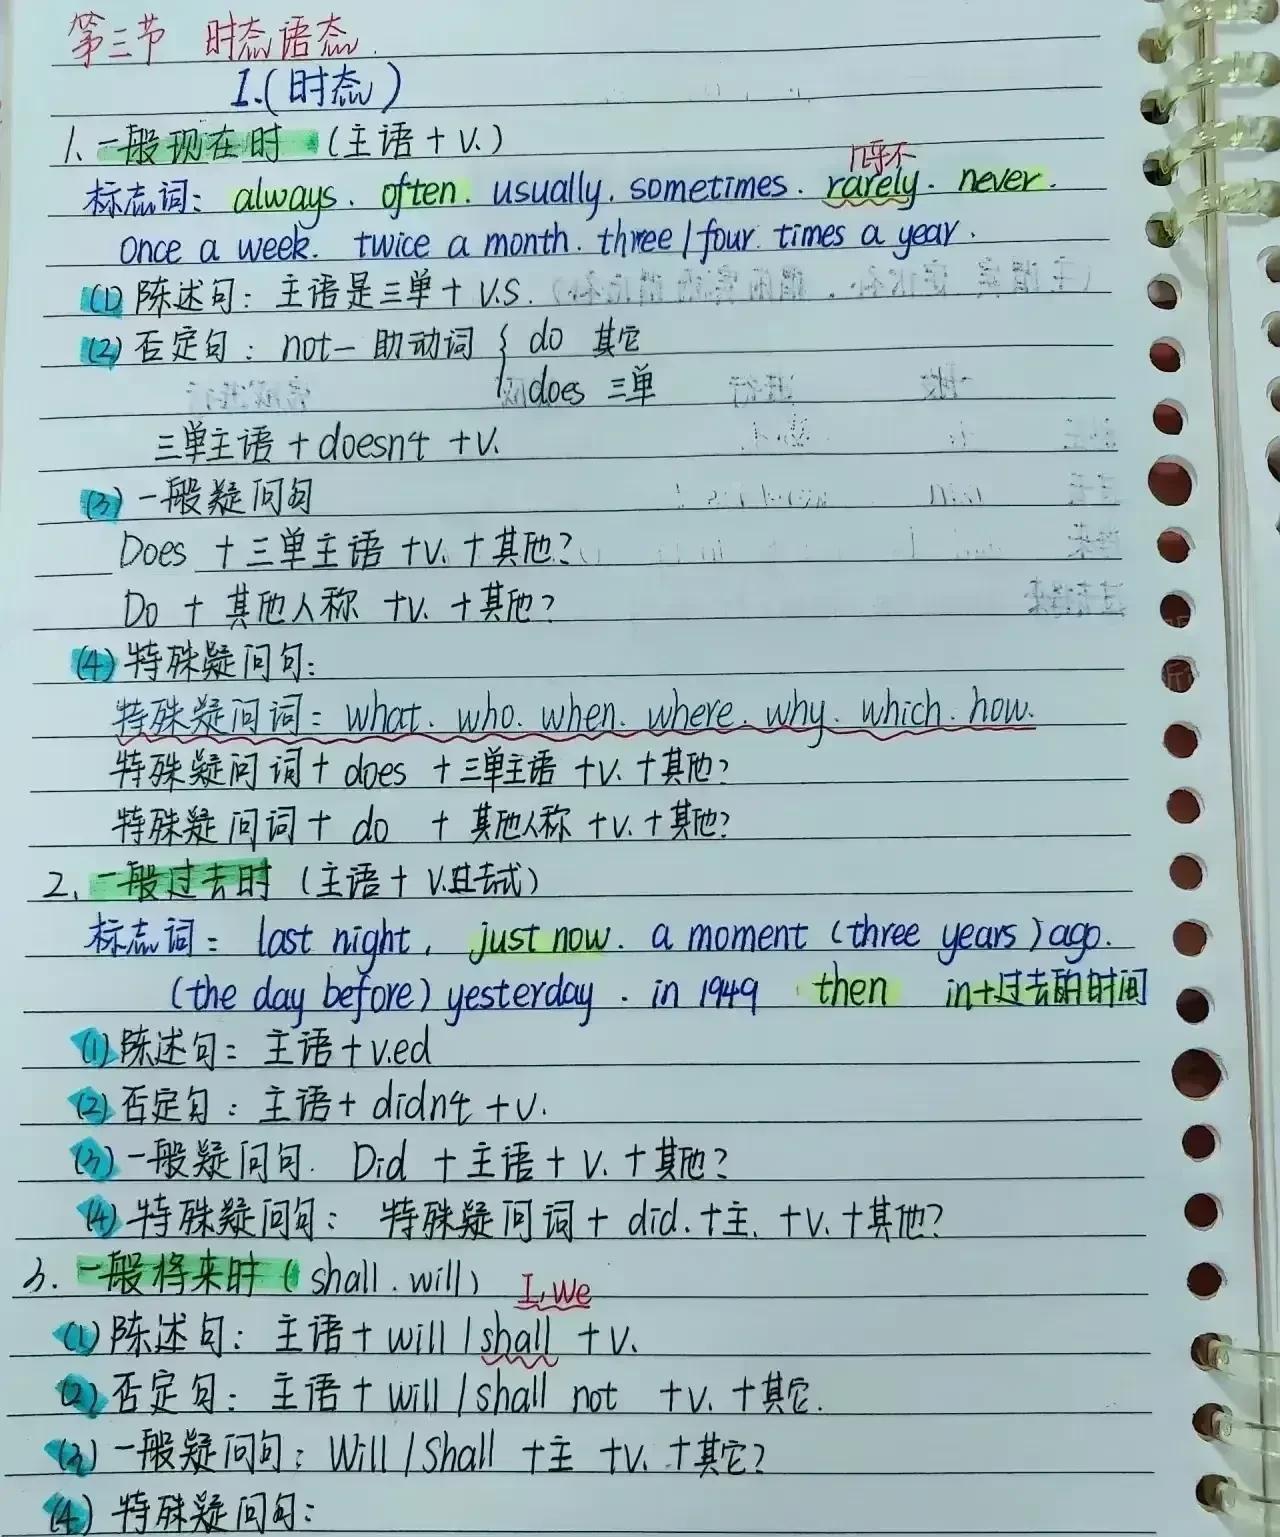 第三节 时态语态.
I.(时态)
1. 一般现在时 (主语 + v.)
几乎不
标志词: always. often. usually. sometimes. rarely. never.
once a week. twice a month. three/four times a year.
(1) 陈述句: 主语是三单 + v.s.
(2) 否定句: not- 助动词 { do 其它
does 三单
三单主语 + doesn't + v.
(3) 一般疑问句
Does + 三单主语 + v. + 其他?
Do + 其他人称 + v. + 其他?
(4) 特殊疑问句:
特殊疑问词: what. who. when. where. why. which. how.
特殊疑问词 + does + 三单主语 + v. + 其他?
特殊疑问词 + do + 其他人称 + v. + 其他?
2. 一般过去时 (主语 + v.过去式)
标志词: last night, just now. a moment (three years) ago.
(the day before) yesterday. in 1949 then in+过去的时间
(1) 陈述句: 主语 + v.ed
(2) 否定句: 主语 + didn't + v.
(3) 一般疑问句. Did + 主语 + v. + 其他?
(4) 特殊疑问句: 特殊疑问词 + did. + 主. + v. + 其他?
3. 一般将来时 (shall. will) I, we
(1) 陈述句: 主语 + will / shall + v.
(2) 否定句: 主语 + will / shall not + v. + 其它.
(3) 一般疑问句: Will / Shall + 主 + v. + 其它?
(4) 特殊疑问句: